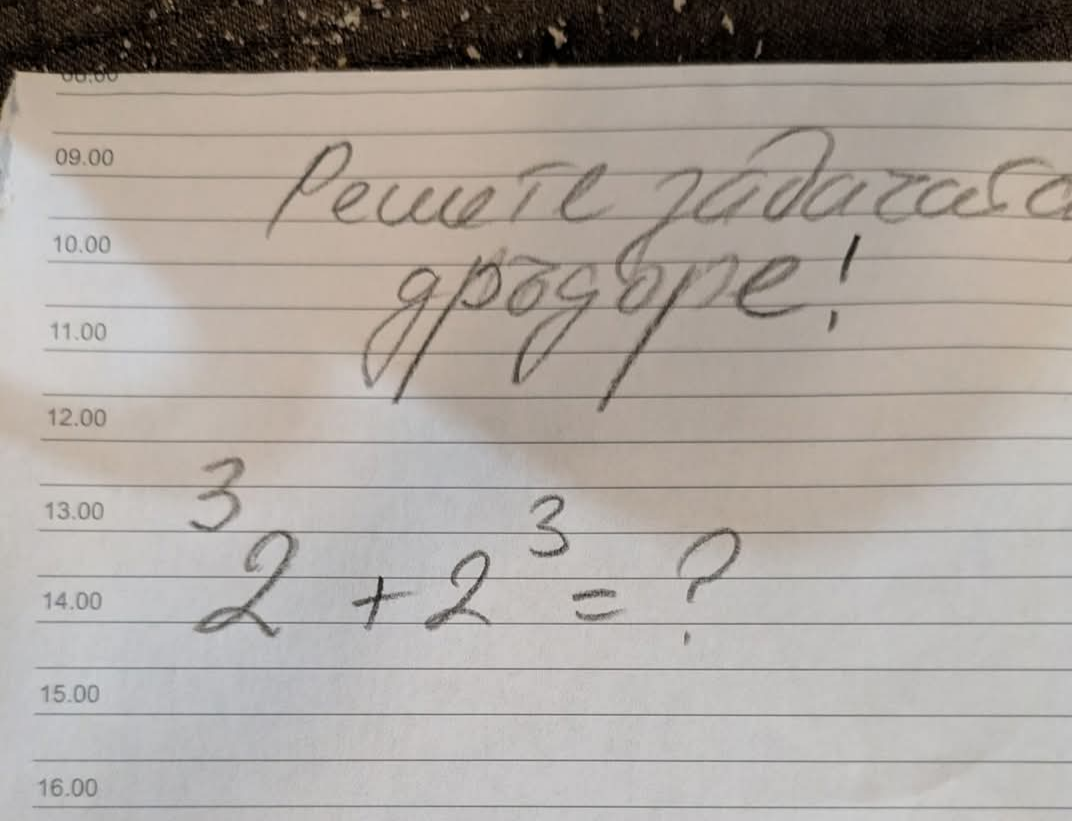 08.00
09.00
Решете задачата
10.00
11.00
12.00
13.00
³2 + 2³ = ?
14.00
15.00
16.00